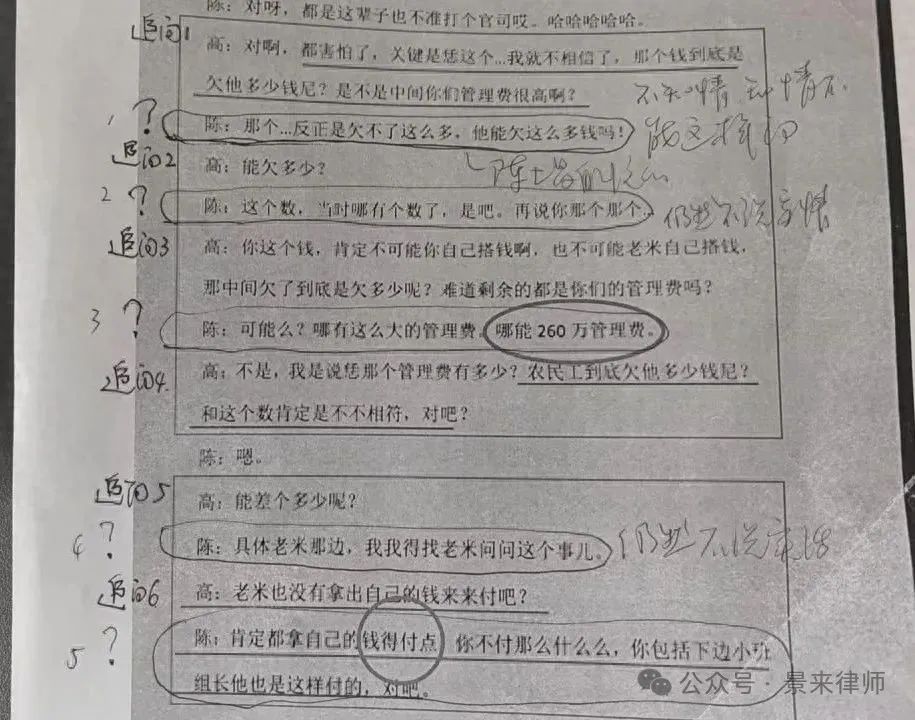 陈：对呀，都是这辈子也不准打个官司哎。哈哈哈哈哈。
追问1
高：对啊，都害怕了，关键是凭这个...我就不相信了，那个钱到底是
欠他多少钱尼？是不是中间你们管理费很高啊？
1 ？
陈：那个...反正是欠不了这么多，他能欠这么多钱吗！
追问2
高：能欠多少？
2 ？
陈：这个数，当时哪有个数了，是吧。再说你那个那个...
仍然不说实情
追问3
高：你这个钱，肯定不可能你自己搭钱啊，也不可能老米自己搭钱，
那中间欠了到底是欠多少呢？难道剩余的都是你们的管理费吗？
3 ？
陈：可能么？哪有这么大的管理费。哪能 260 万管理费。
追问4
高：不是，我是说凭那个管理费有多少？农民工到底欠他多少钱尼？
和这个数肯定是不不相符，对吧？
陈：嗯。
追问5
高：能差个多少呢？
4 ？
陈：具体老米那边，我我得找老米问问这个事儿。
仍然不说实情
追问6
高：老米也没有拿出自己的钱来来付吧？
5 ？
陈：肯定都拿自己的钱得付点 你不付那么什么么，你包括下边小班
组长他也是这样付的，对吧。
公众号 · 景来律师